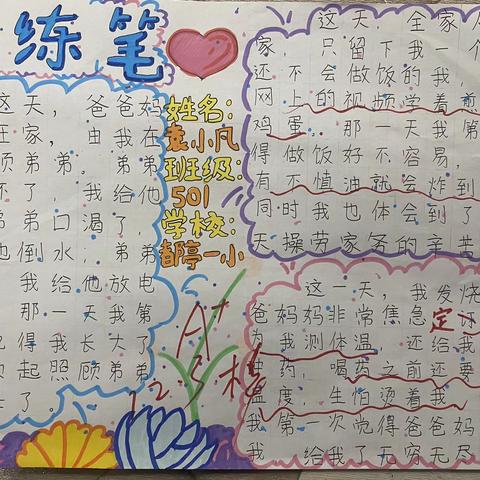 练笔
这天,爸爸妈
在家,由我在
顾弟弟。弟弟
坏了,我给他
弟弟口渴了,
他倒水,弟弟
我给他放电
那一天我第
觉得我长大了
顾起照顾弟弟
任了。
姓名:
袁小凡
班级:
501
学校:
都亭一小
A+
12.5
这天,全家
家,只留下我一个
还不会做饭的我,
网上的视频学着煎
鸡蛋。那一天我第
得做饭好不容易,
有不慎油就会炸到
同时我也体会到了
天操劳家务的辛苦
这一天,我发烧
爸妈妈非常焦急定订
为我测体温还给我
吃药,喝药之前还要
温度,生怕烫着我
我第一次觉得爸爸妈
我给我了无穷无尽